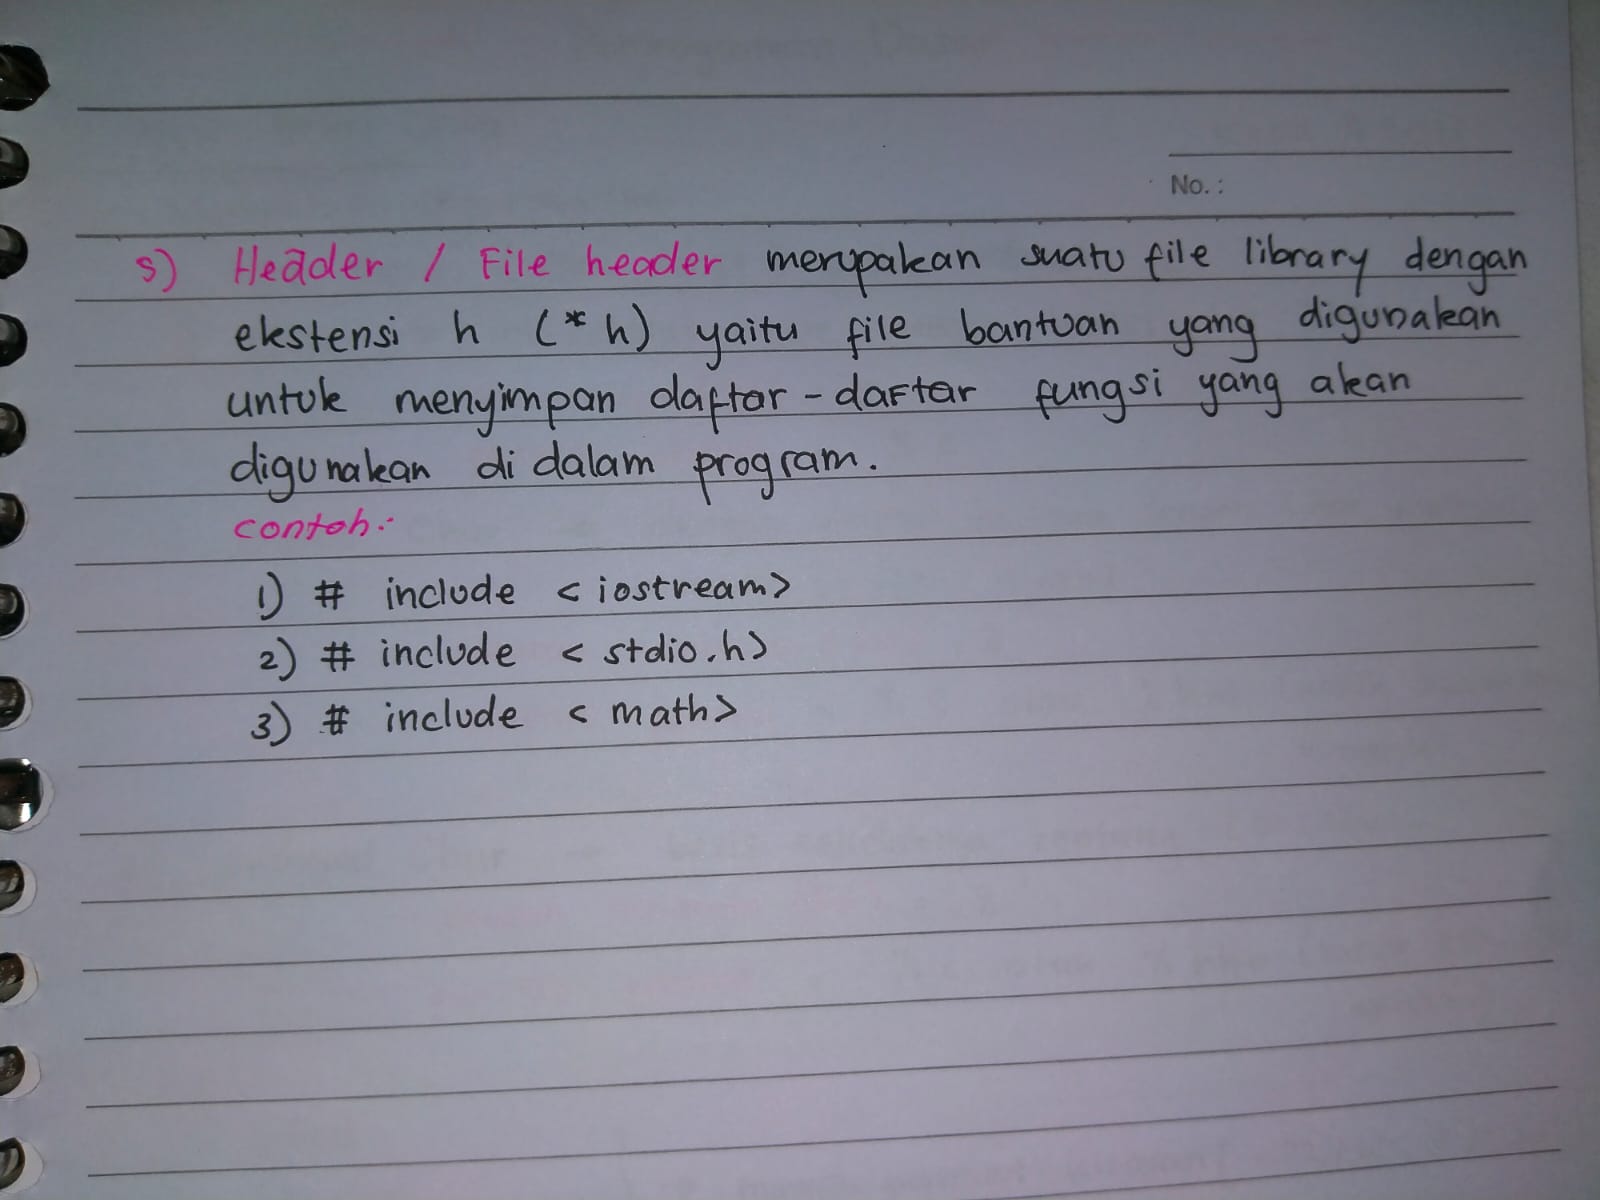 No.:
5) Header / File header merupakan suatu file library dengan
ekstensi h (*h) yaitu file bantuan yang digunakan
untuk menyimpan daftar - daftar fungsi yang akan
digunakan di dalam program.
contoh:
1) # include <iostream>
2) # include <stdio.h>
3) # include <math>